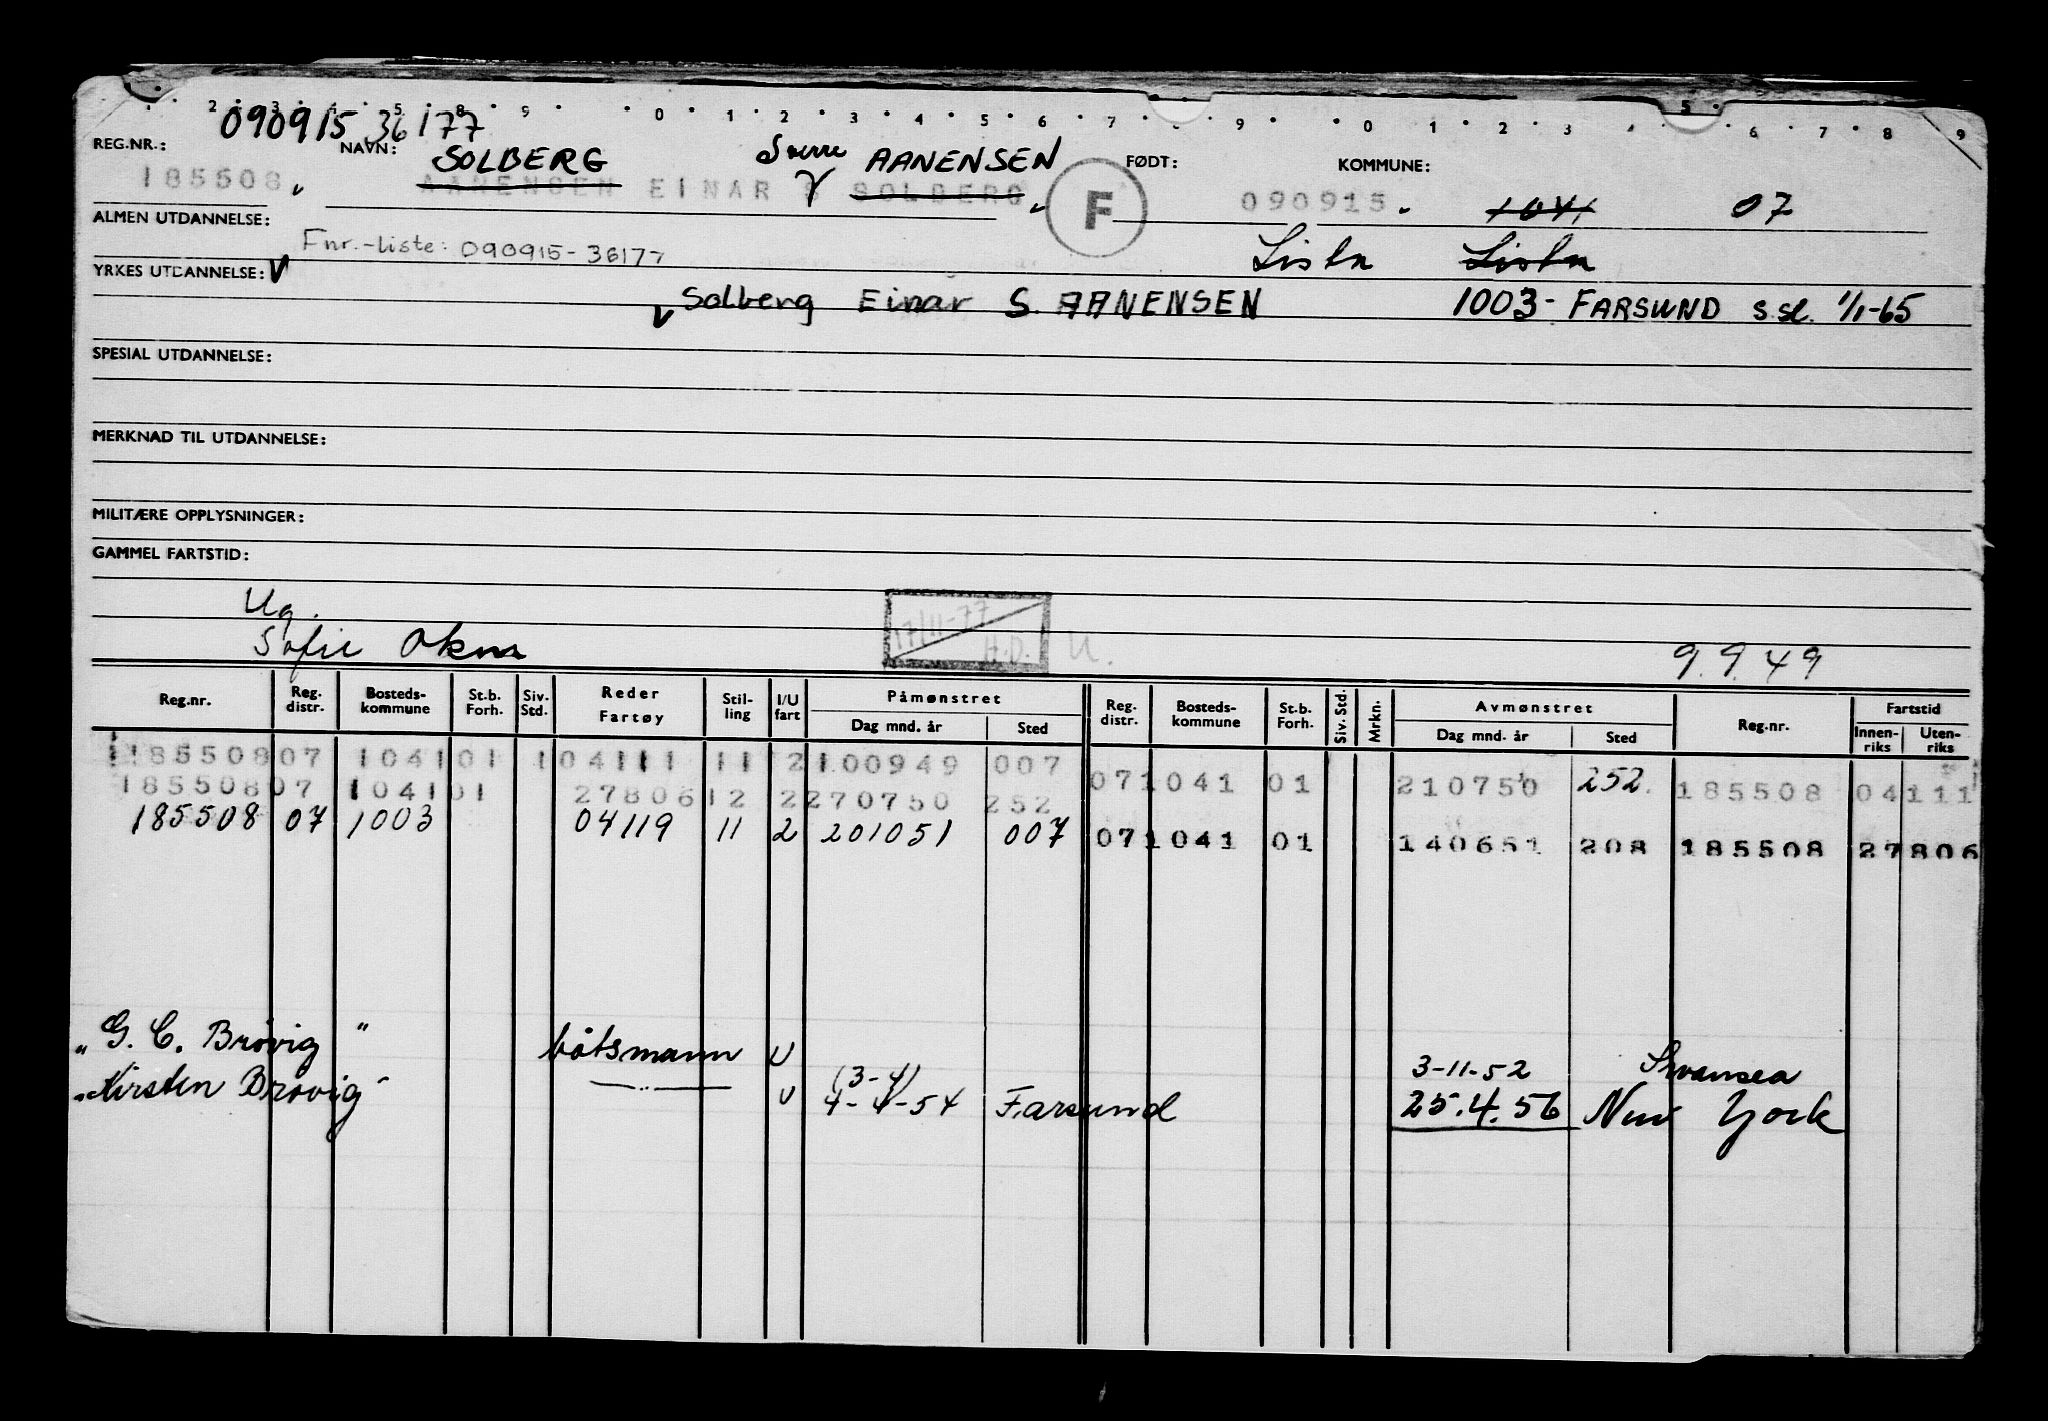 2 3 4 5 8 9 0 1 2 3 4 5 6 7 8 9 0 1 2 3 5 6 7 8 9
090915 36177
REG.NR.: NAVN: SOLBERG Sverre AANENSEN FØDT: KOMMUNE:
185508 AANENSEN EINAR S SOLBERG F 090915 1041 07
ALMEN UTDANNELSE:
Fnr.-liste: 090915-36177 Lista Lista
YRKES UTDANNELSE: V
V Solberg Einar S. AANENSEN 1003- FARSUND s.sl. 1/1-65
SPESIAL UTDANNELSE:
MERKNAD TIL UTDANNELSE:
MILITÆRE OPPLYSNINGER:
GAMMEL FARTSTID:
Ug.
17/11-77 H.D. U.
Sofie 9.9.49
Reg.nr. Reg. distr. Bosteds-kommune St.b. Forh. Siv. Std. Reder Fartøy Stil-ling I/U fart Påmønstret Dag mnd. år Sted Reg. distr. Bosteds-kommune St.b. Forh. Siv. Std. Mrkn. Avmønstret Dag mnd. år Sted Reg.nr. Fartstid Innen-riks Uten-riks
118550807 104101 104111 11 2100949 007 071041 01 210750 252. 185508 04111
18550807 104101 27806 12 2270750 252
185508 07 1003 04119 11 2 201051 007 071041 01 140651 208 185508 27806
"G. C. Brøvig" båtsmann U 3-11-52 Swansea
"Kirsten Brøvig" U (3-4) 4-4-54 Farsund 25.4.56 New York